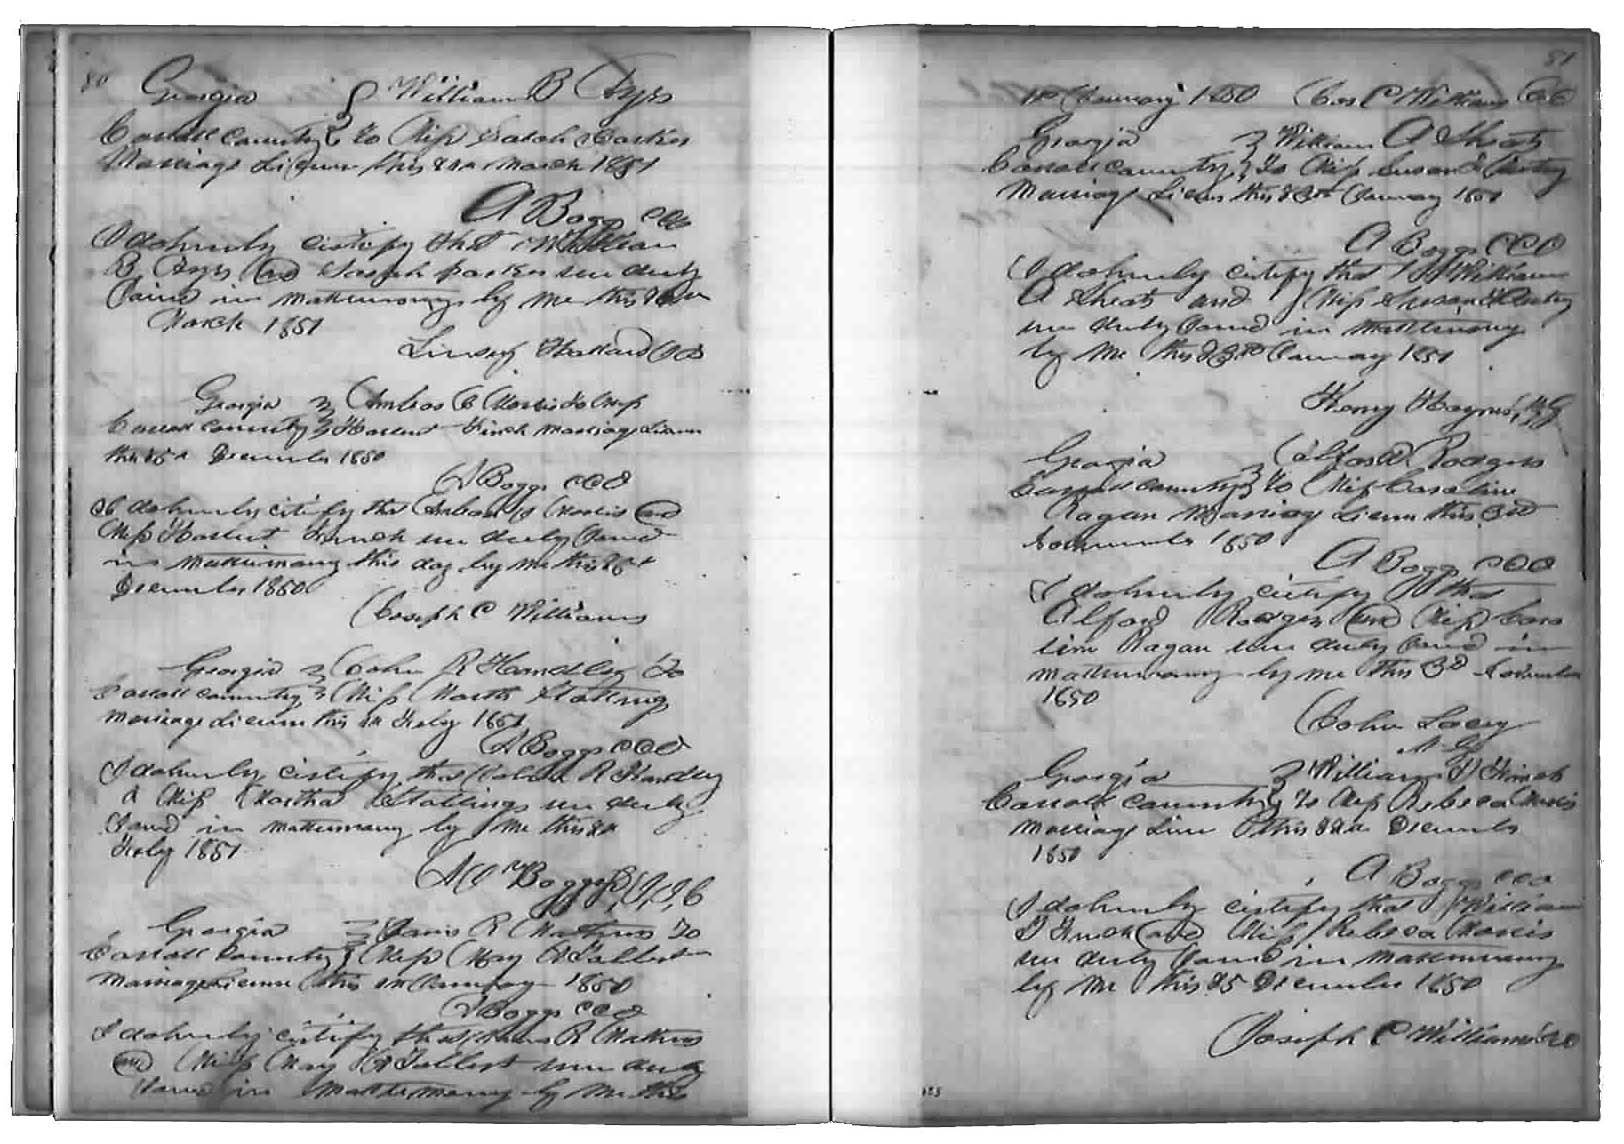 80
Georgia } William B Ayrs
Carroll County } to Miss Sarah Parker
Marriage License this March 1851
A Boggs CCO
I do hereby certify that William
B Ayrs and Sarah Parker were duly
Joined in Matrimony by me this
March 1851
Linsey Holland
Georgia } Ambros C Morris to Miss
Carroll County } Harriet Finch Marriage License
this 25 December 1850
A Boggs CCO
I do hereby certify that Ambros C Morris and
Miss Harriet Finch were duly Joined
in Matrimony this day by me this
December 1850
Joseph C Williams
Georgia } John R Handley to
Carroll County } Miss Martha Stallings
Marriage License this Feby 1851
A Boggs CCO
I do hereby certify that John R Handley
& Miss Martha Stallings were duly
Joined in Matrimony by Me this
Feby 1851
Boggs J.I.C
Georgia } James R Mathews to
Carroll County } Miss May A Talbert
Marriage License this January 1850
A Boggs CCO
I do hereby certify that James R Mathews
and Miss May A Talbert were duly
Joined in Matrimony by Me this
81
January 1850 Jos C Williams
Georgia } William A Sheats
Carroll County } to Miss Susan
Marriage License this 23rd January 1851
A Boggs CCO
I do hereby certify that William
A Sheats and Miss Susan
were duly Joined in Matrimony
by Me this 23rd January 1851
Henry Haynes, MG
Georgia } Alford Rodgers
Carroll County } to Miss Caroline
Ragan Marriage License this 3rd
November 1850
A Boggs CCO
I do hereby certify that
Alford Rodgers and Miss Caro
line Ragan were duly Joined in
Matrimony by me this 3d November
1850
John Lacey
M G
Georgia } William D Finch
Carroll County } to Miss Rebeca Morris
Marriage License this December
1850
A Boggs CCO
I do hereby certify that William
D Finch and Miss Rebeca Morris
were duly Joined in Matrimony
by Me this 25 December 1850
Joseph C Williams